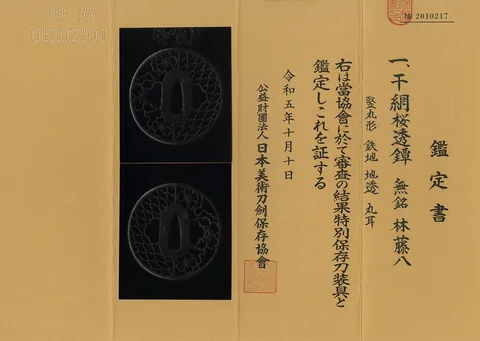 № 2010217
鑑定書
一、干網桜透鐔 無銘 林藤八
竪丸形 鉄地 地透 丸耳
右は當協會に於て審査の結果特別保存刀装具と
鑑定しこれを証する
令和五年十月十日
公益財團法人 日本美術刀劍保存協會